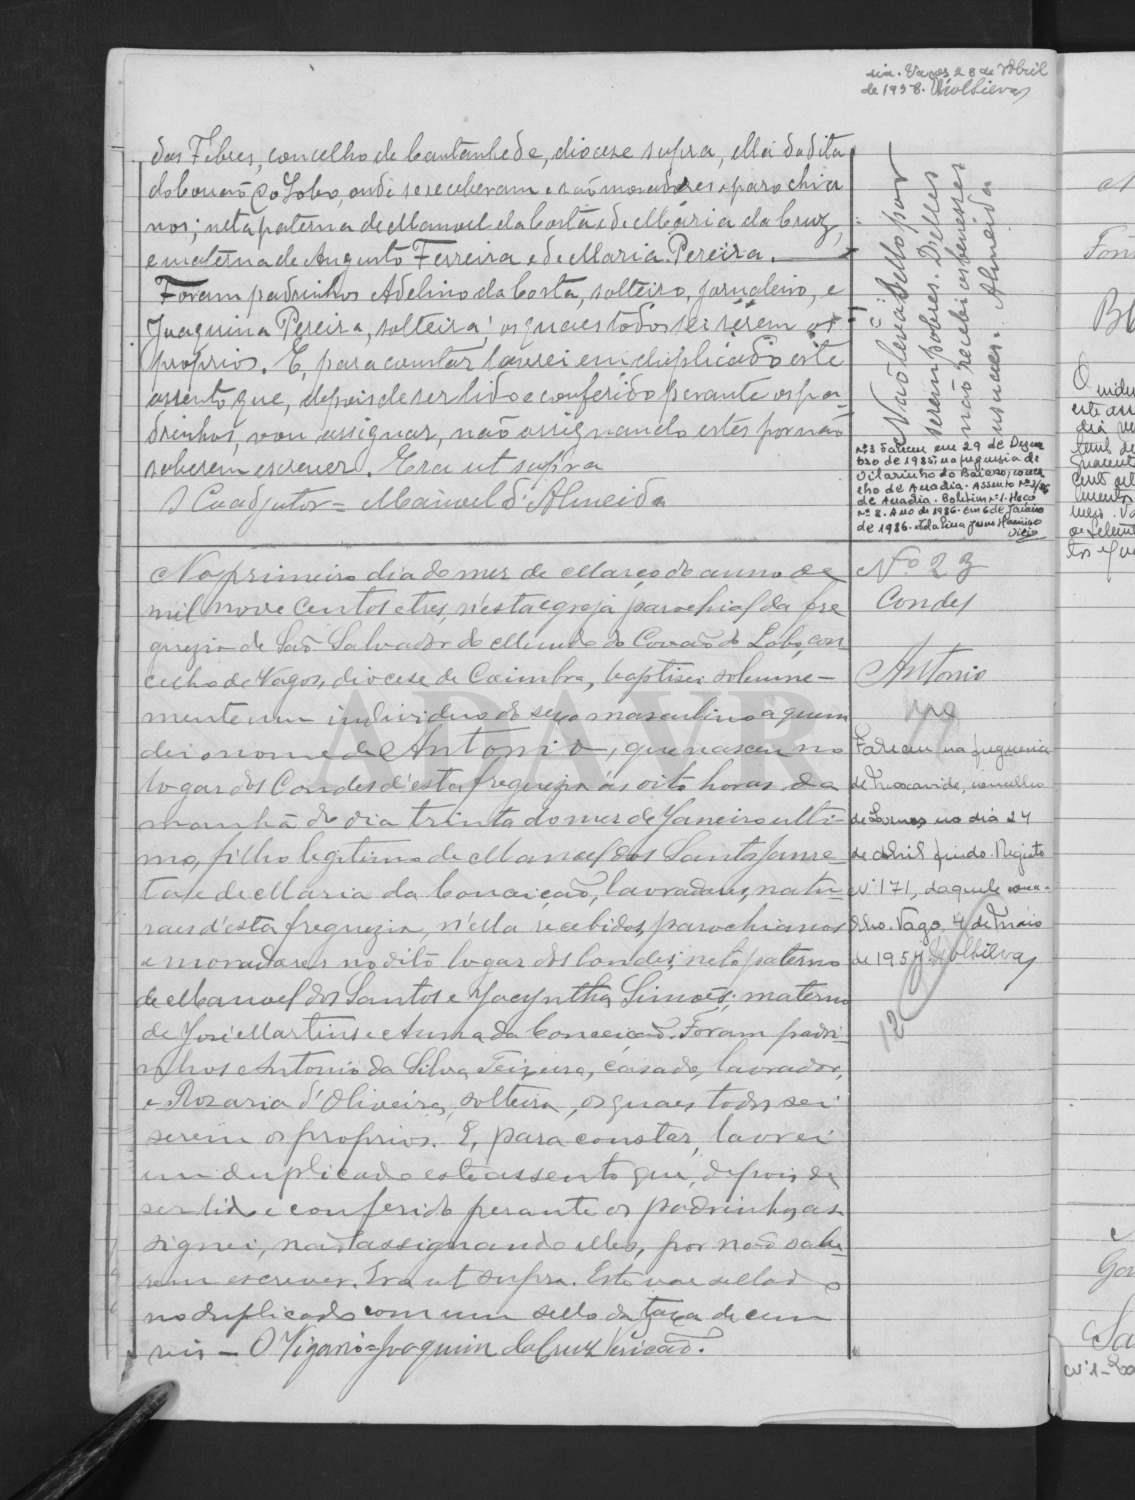 das Febres, concelho de Cantanhede, diocese supra, e ella da dita
do Covão do Lobo, onde se receberam e são moradores e parochia
nos; neta paterna de Manoel da Costa e de Maria da Cruz,
e materna de Augusto Ferreira e de Maria Pereira.
Foram padrinhos Adelino da Costa, solteiro, jornaleiro, e
Joaquina Pereira, solteira, os quaes todos sei serem os
proprios. E, para constar lavrei em duplicado este
assento que, depois de ser lido e conferido perante os pa-
drinhos, vou assignar, não assignando estes por não
saberem escrever. Era ut supra
O Coadjutor = Manoel d'Almeida
No primeiro dia do mez de Março do anno de
mil nove centos e tres, n'esta egreja parochial da fre
guezia de São Salvador do Mundo do Covão do Lobo, con
celho de Vagos, diocese de Coimbra, baptisei solemne-
mente um individuo do sexo masculino a quem
dei o nome de Antonio, que nasceu no
logar dos Condes d'esta freguezia ás oito horas da
manhã do dia trinta do mez de Janeiro ulti-
mo, filho legitimo de Manoel dos Santos
e de Maria da Conceição, lavradores, natu-
raes d'esta freguezia, n'ella recebidos, parochianos
e moradores no dito logar dos Condes; neto paterno
de Manoel dos Santos e Jacyntha Simões; materno
de José Martins e Anna da Conceição. Foram padri-
nhos Antonio da Silva Teixeira, casado, lavrador,
e Rozaria d'Oliveira, solteira, os quaes todos sei
serem os proprios. E, para constar, lavrei
em duplicado este assento que, depois de
ser lido e conferido perante os padrinhos, as
signei, não assignando elles, por não sabe-
rem escrever. Era ut supra. Este vae sellado
no duplicado com um sello da taxa de cem
reis - O Vigario = Joaquim da Cruz
Vagos 28 de Abril
de 1958.
Não leva sello por
serem pobres. D'elles
não recebi os benesses
usuaes. Almeida
Nº 3 Faleceu em 29 de Dezem
bro de 1985, na freguesia de
Vilarinho do Bairro, conce
lho de Anadia. Assento Nº 2/86
de Anadia. Boletim nº 1. Maço
Nº 2. Ano de 1986. Em 6 de Janeiro
de 1986.
Nº 23
Condes
Antonio
Faleceu na freguesia
de Moscavide, concelho
de Loures no dia 24
de abril findo. Registo
Nº 171, daquele conce-
lho. Vagos, 4 de Maio
de 1957
12
ADAVR